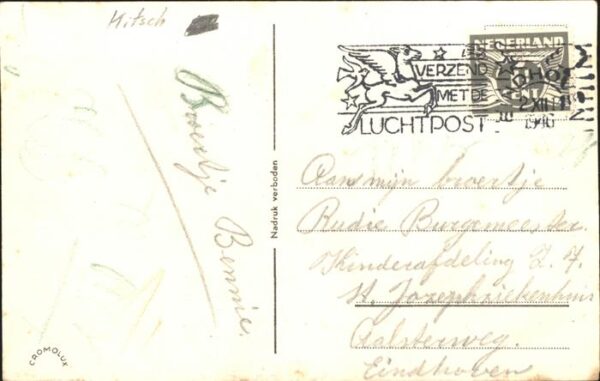 Hitsch
Broertje Bennie.
CROMOLUX
Nadruk verboden
NEDERLAND
VERZEND
MET DE
LUCHTPOST
EINDHOVEN
2 XII
1946
Aan mijn broertje
Rudie Burgemeester.
Kinderafdeling Z. 7.
St. Jozephziekenhuis
Aalsterweg.
Eindhoven